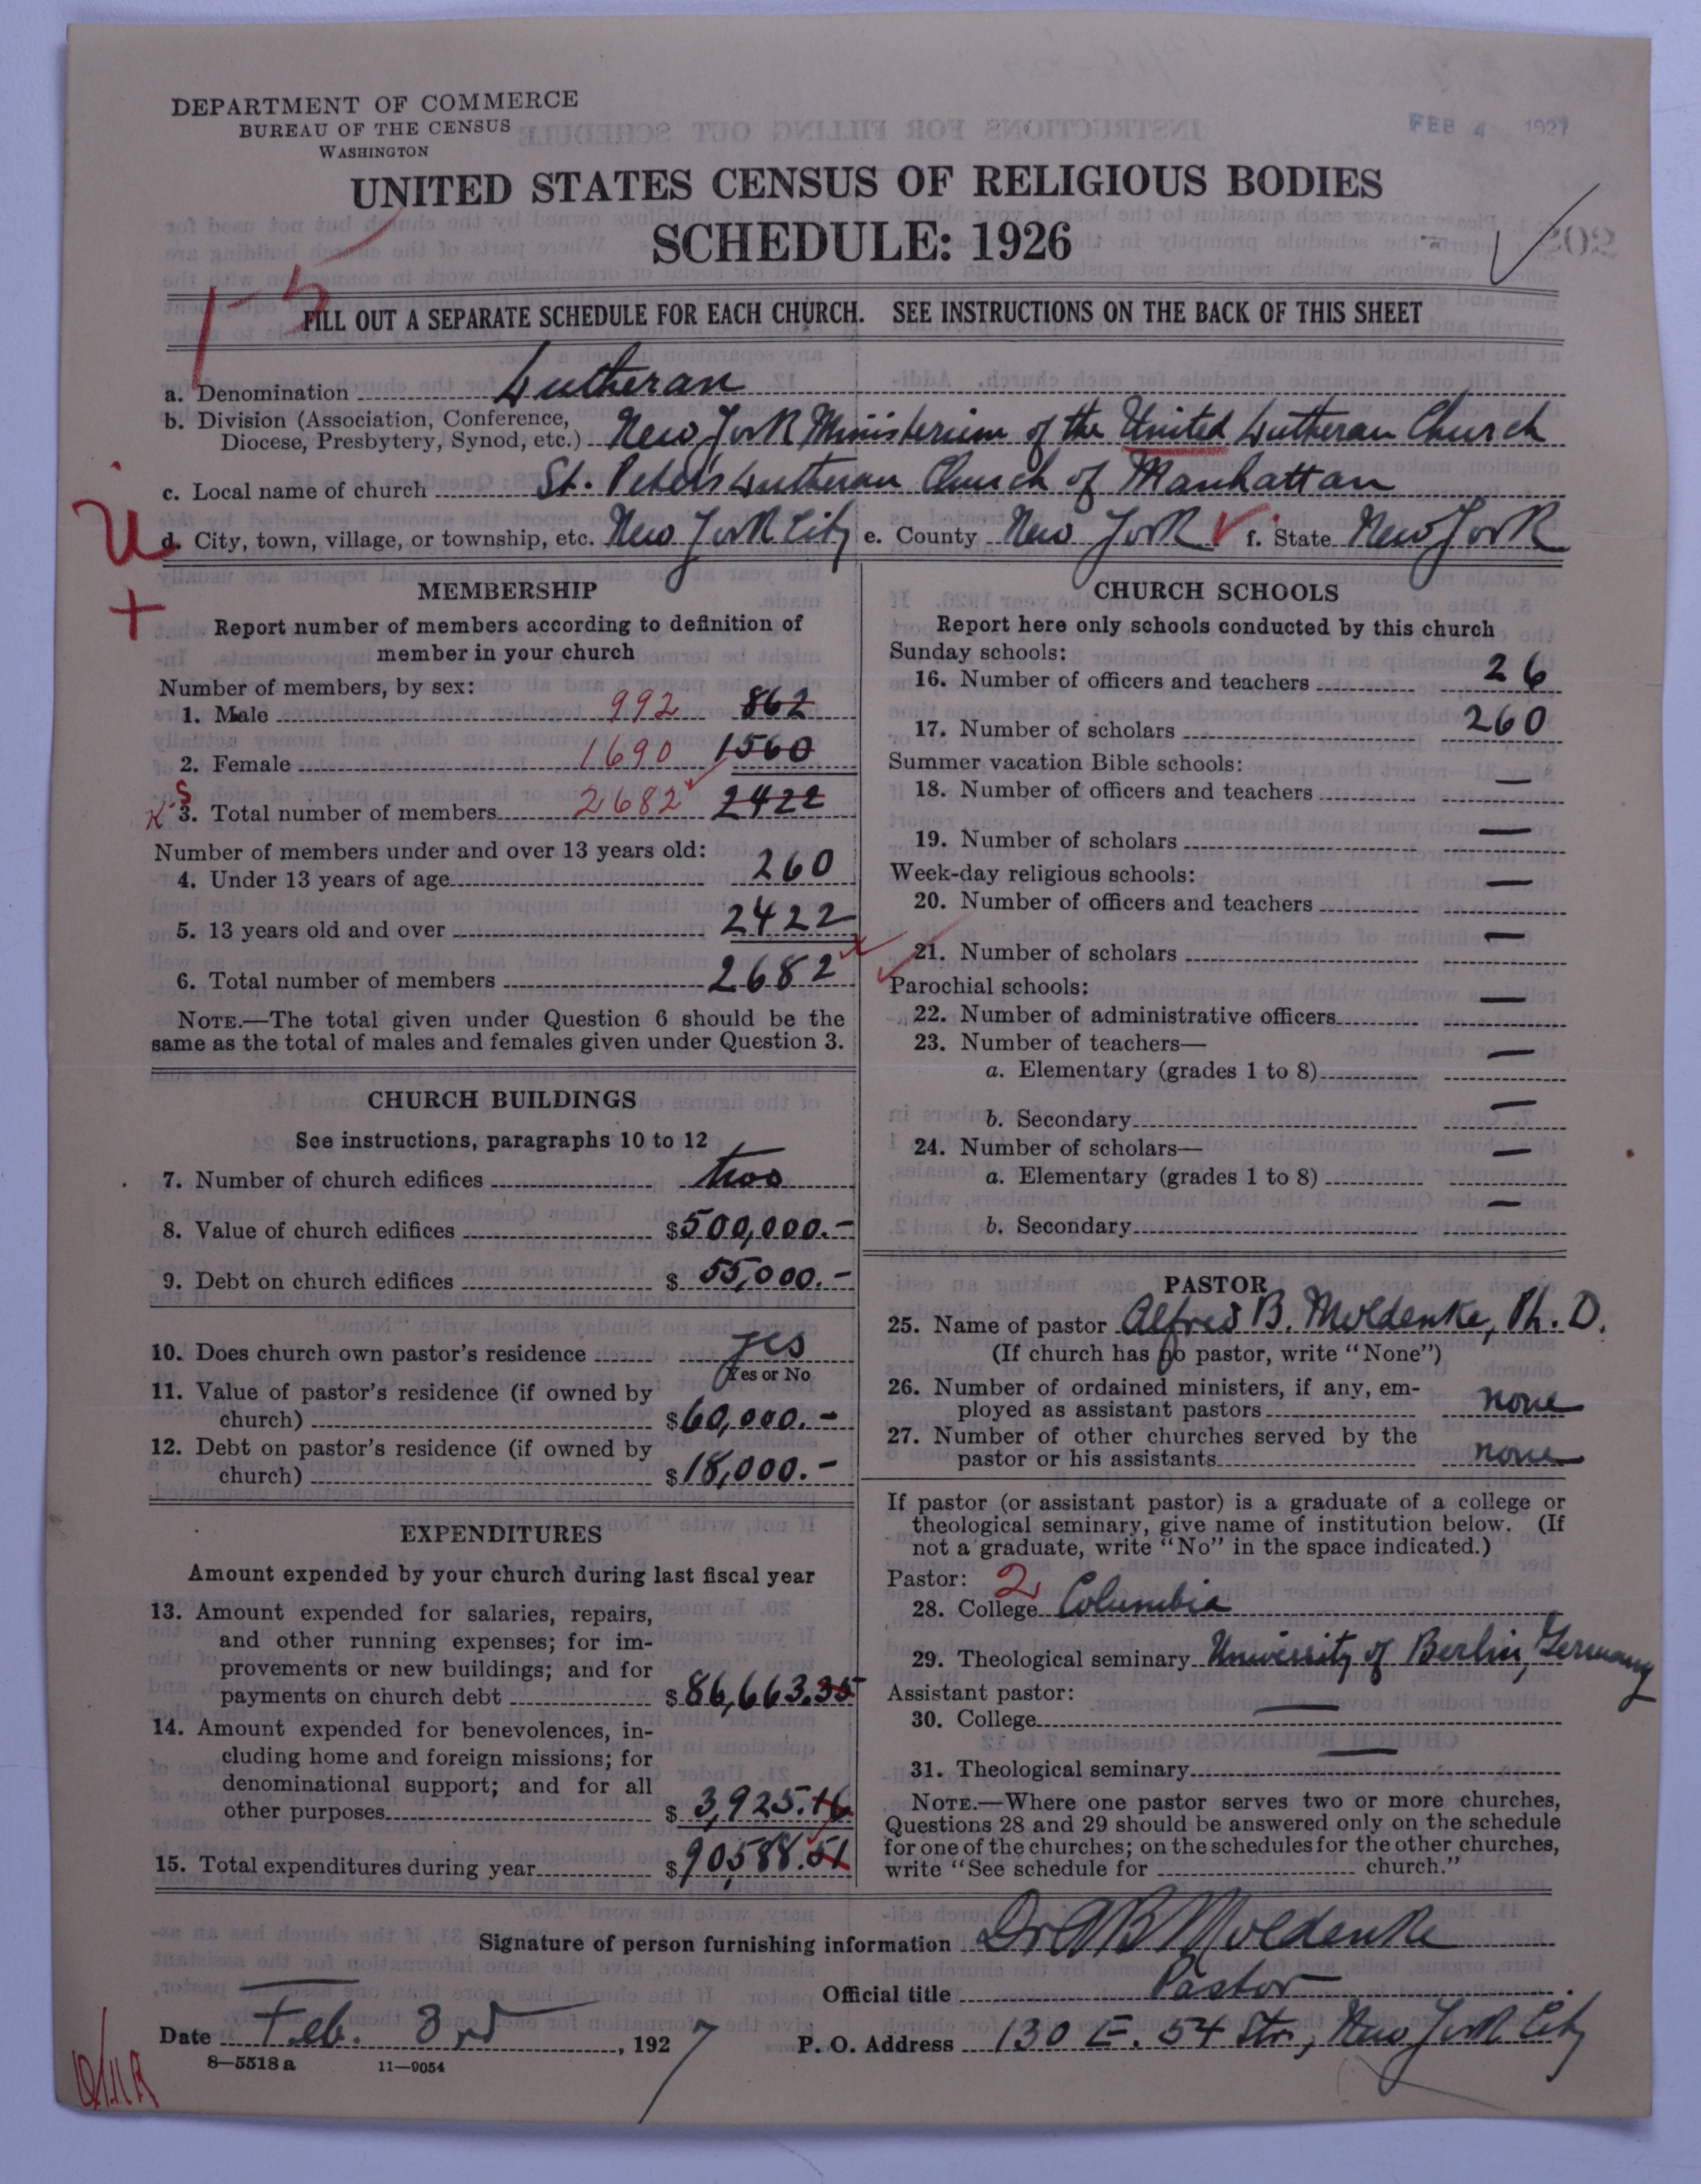 DEPARTMENT OF COMMERCE
BUREAU OF THE CENSUS
WASHINGTON
FEB 4 1927
UNITED STATES CENSUS OF RELIGIOUS BODIES
SCHEDULE: 1926
1-5
FILL OUT A SEPARATE SCHEDULE FOR EACH CHURCH. SEE INSTRUCTIONS ON THE BACK OF THIS SHEET
a. Denomination Lutheran
b. Division (Association, Conference,
Diocese, Presbytery, Synod, etc.) New York Ministerium of the United Lutheran Church
c. Local name of church St. Peter's Lutheran Church of Manhattan
d. City, town, village, or township, etc. New York City e. County New York f. State New York
U
+
MEMBERSHIP
Report number of members according to definition of
member in your church
Number of members, by sex:
1. Male 992 862
2. Female 1690 1560
3. Total number of members 2682 2422
Number of members under and over 13 years old:
4. Under 13 years of age 260
5. 13 years old and over 2422
6. Total number of members 2682
NOTE.—The total given under Question 6 should be the
same as the total of males and females given under Question 3.
CHURCH BUILDINGS
See instructions, paragraphs 10 to 12
7. Number of church edifices two
8. Value of church edifices $500,000.-
9. Debt on church edifices $55,000.-
10. Does church own pastor's residence yes
Yes or No
11. Value of pastor's residence (if owned by
church) $60,000.-
12. Debt on pastor's residence (if owned by
church) $18,000.-
EXPENDITURES
Amount expended by your church during last fiscal year
13. Amount expended for salaries, repairs,
and other running expenses; for im-
provements or new buildings; and for
payments on church debt $86,663.35
14. Amount expended for benevolences, in-
cluding home and foreign missions; for
denominational support; and for all
other purposes $3,925.16
15. Total expenditures during year $90,588.51
CHURCH SCHOOLS
Report here only schools conducted by this church
Sunday schools:
16. Number of officers and teachers 26
17. Number of scholars 260
Summer vacation Bible schools:
18. Number of officers and teachers —
19. Number of scholars —
Week-day religious schools:
20. Number of officers and teachers —
21. Number of scholars —
Parochial schools:
22. Number of administrative officers —
23. Number of teachers—
a. Elementary (grades 1 to 8) —
b. Secondary —
24. Number of scholars—
a. Elementary (grades 1 to 8) —
b. Secondary —
PASTOR
25. Name of pastor Alfred B. Moldenke, Ph. D.
(If church has no pastor, write "None")
26. Number of ordained ministers, if any, em-
ployed as assistant pastors none
27. Number of other churches served by the
pastor or his assistants none
If pastor (or assistant pastor) is a graduate of a college or
theological seminary, give name of institution below. (If
not a graduate, write "No" in the space indicated.)
Pastor: 2
28. College Columbia
29. Theological seminary University of Berlin, Germany
Assistant pastor:
30. College —
31. Theological seminary —
NOTE.—Where one pastor serves two or more churches,
Questions 28 and 29 should be answered only on the schedule
for one of the churches; on the schedules for the other churches,
write "See schedule for church."
Signature of person furnishing information Dr AB Moldenke
Official title Pastor
Date Feb. 3rd, 1927 P. O. Address 130 E. 54 Str., New York City
8—5518 a 11—9054